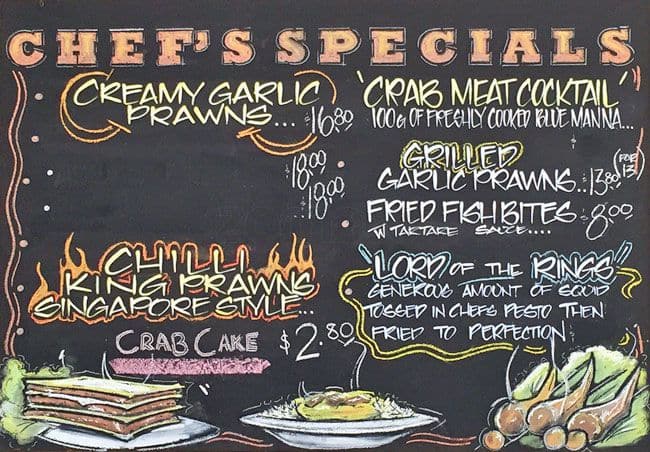 CHEF'S SPECIALS
CREAMY GARLIC
PRAWNS... $16.80
$18.00
$18.00
CHILLI
KING PRAWNS
SINGAPORE STYLE...
CRAB CAKE $2.80
"CRAB MEAT COCKTAIL"
100g OF FRESHLY COOKED BLUE MANNA...
GRILLED
GARLIC PRAWNS..$13.80 (FOR 13)
FRIED FISH BITES $8.00
W TARTARE SAUCE....
"LORD OF THE RINGS"
GENEROUS AMOUNT OF SQUID
TOSSED IN CHEFS PESTO THEN
FRIED TO PERFECTION